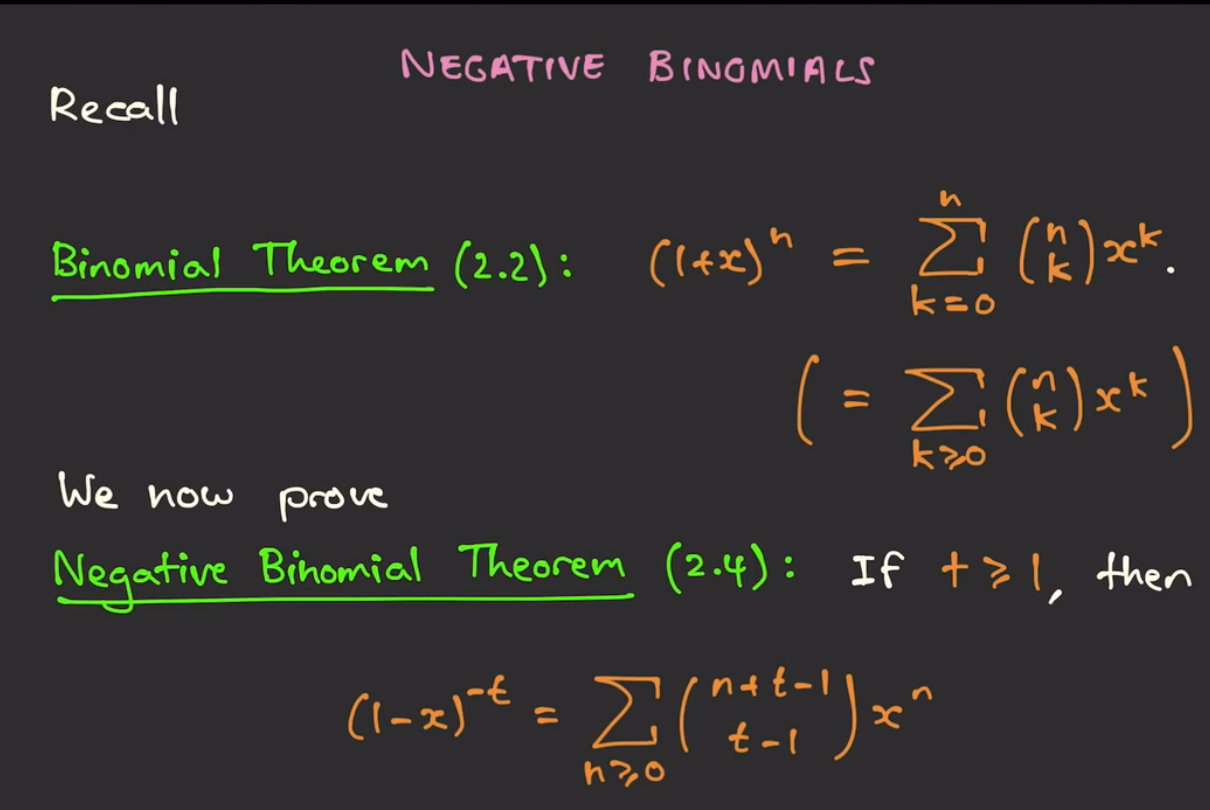 NEGATIVE BINOMIALS
Recall
Binomial Theorem (2.2): (1+x)^n = \sum_{k=0}^{n} \binom{n}{k} x^k.
( = \sum_{k⩾0} \binom{n}{k} x^k )
We now prove
Negative Binomial Theorem (2.4): If t ⩾ 1, then
(1-x)^{-t} = \sum_{n⩾0} \binom{n+t-1}{t-1} x^n